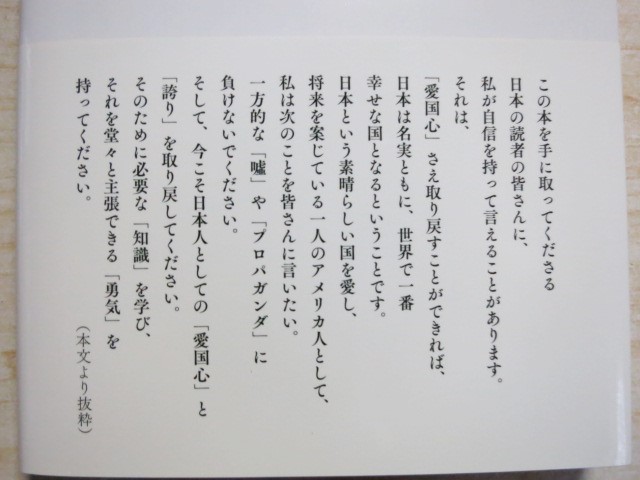 この本を手に取ってくださる
日本の読者の皆さんに、
私が自信を持って言えることがあります。
それは、
「愛国心」さえ取り戻すことができれば、
日本は名実ともに、世界で一番
幸せな国となるということです。
日本という素晴らしい国を愛し、
将来を案じている一人のアメリカ人として、
私は次のことを皆さんに言いたい。
一方的な「嘘」や「プロパガンダ」に
負けないでください。
そして、今こそ日本人としての「愛国心」と
「誇り」を取り戻してください。
そのために必要な「知識」を学び、
それを堂々と主張できる「勇気」を
持ってください。
（本文より抜粋）